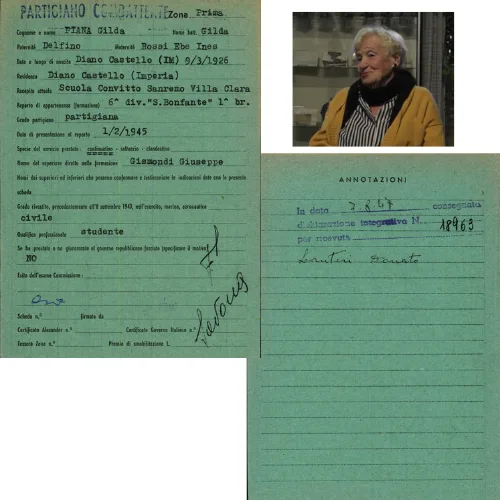 PARTIGIANO COMBATTENTE Zona Prima
Cognome e nome PIANA Gilda Nome batt. Gilda
Paternità Delfino Maternità Rossi Ebe Ines
Data e luogo di nascita Diano Castello (IM) 9/3/1926
Residenza Diano Castello (Imperia)
Recapito attuale Scuola Convitto Sanremo Villa Clara
Reparto di appartenenza (formazione) 6^ div."S.Bonfante" 1^ br.
Grado partigiano partigiana
Data di presentazione al reparto 1/2/1945
Specie del servizio prestato: continuativo - saltuario - clandestino -
Nome del superiore diretto nella formazione Gismondi Giuseppe
Nomi dei superiori ed inferiori che possono confermare e testimoniare le indicazioni date con la presente
scheda
Grado rivestito, precedentemente all'8 settembre 1943, nell'esercito, marina, aeronautica
civile
Qualifica professionale studente
Se ha prestato o no giuramento al governo repubblicano fascista (specificare il motivo)
NO
Esito dell'esame Commissione:
Scheda n.° firmata da
Certificato Alexander n.° Certificato Governo Italiano n.°
Tessera Zona n.° Premio di smobilitazione L.
Savona
ANNOTAZIONI
In data 7.8.47 consegnata
dichiarazione integrativa N. 18963
per ricevuta